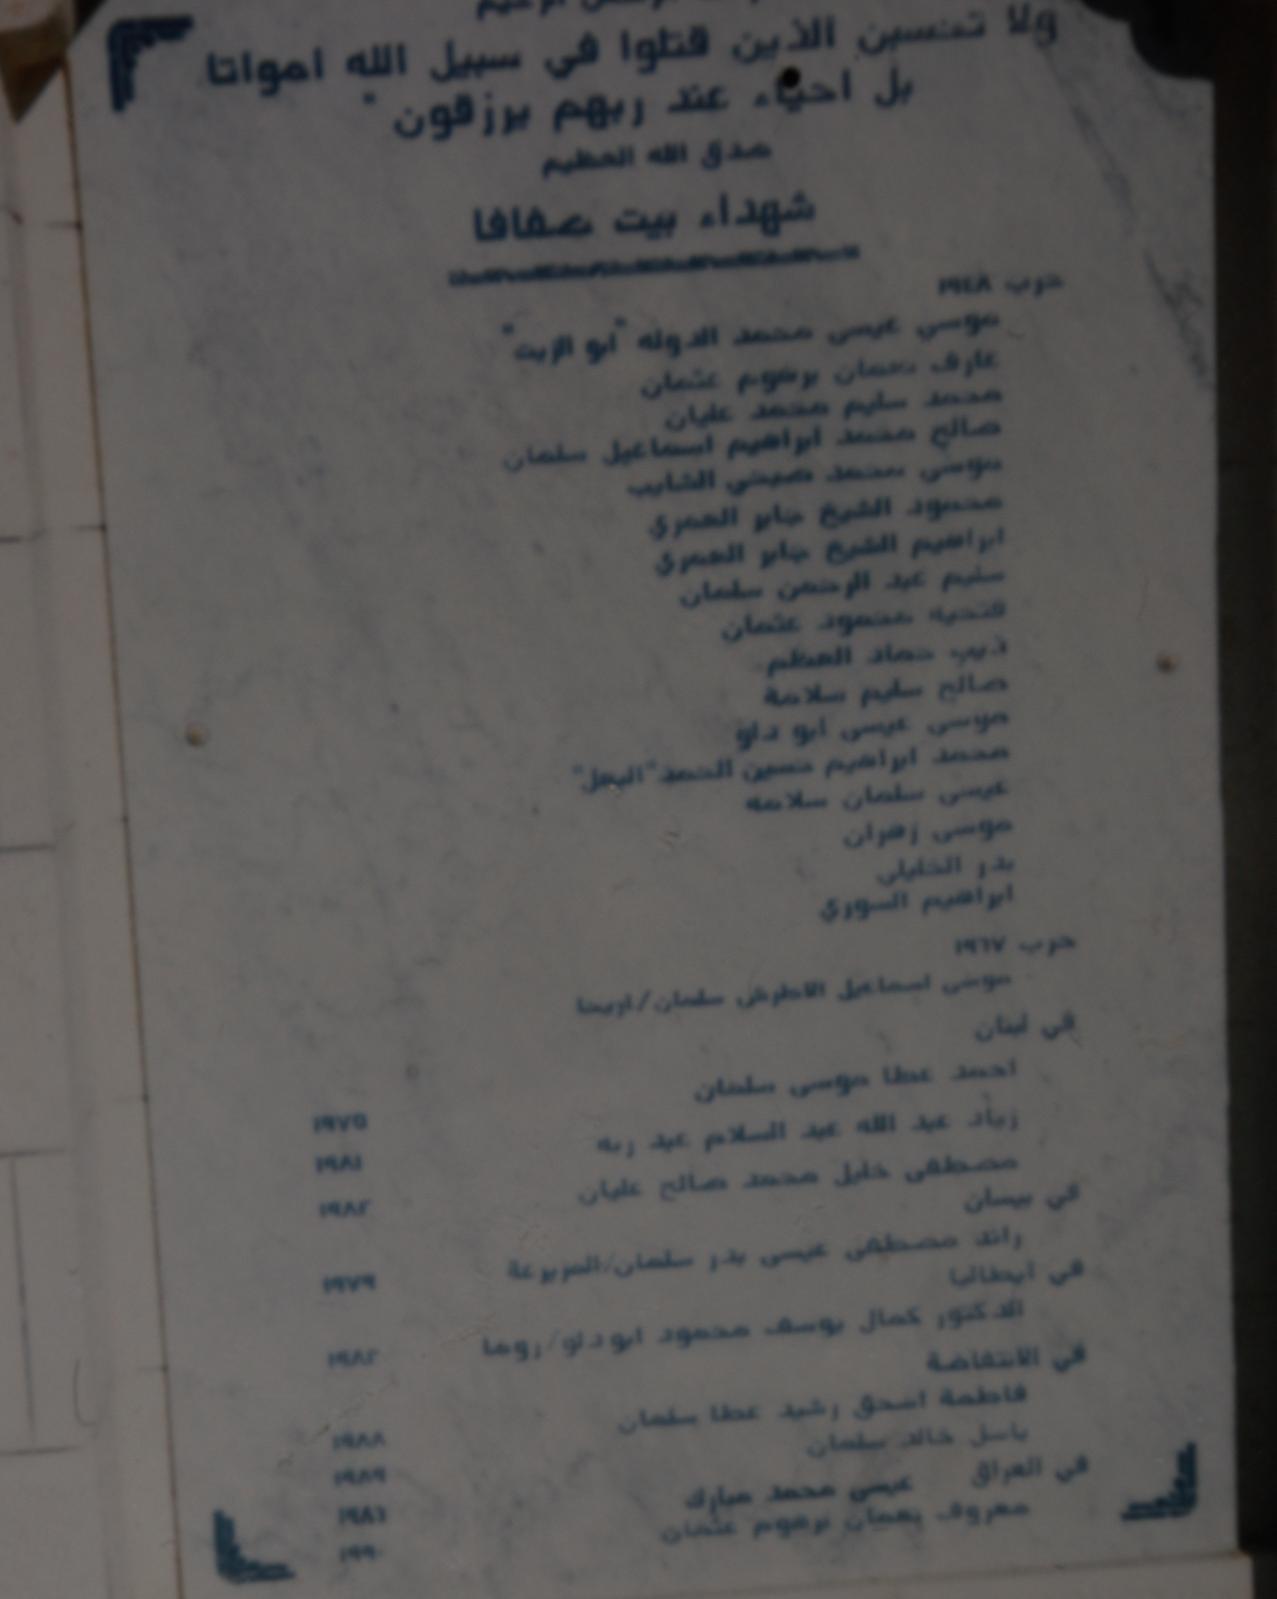 الرحمن الرحيم
ولا تحسبن الذين قتلوا في سبيل الله امواتا
بل احياء عند ربهم يرزقون "
صدق الله العظيم
شهداء بيت صفافا
حرب ١٩٤٨
موسى عيسى محمد الدوله "ابو الزيت"
عارف نعمان برهوم عثمان
محمد سليم محمد عليان
صالح محمد ابراهيم اسماعيل سلمان
موسى محمد صبحي الشايب
محمود الشيخ جابر العمري
ابراهيم الشيخ جابر العمري
سليم عبد الرحمن سلمان
فتحيه محمود عثمان
ذيب حماد العظم
صالح سليم سلامة
موسى عيسى ابو دلو
محمد ابراهيم حسين الحمد
عيسى سلمان سلامه
موسى زهران
بدر الخليلي
ابراهيم السوري
حرب ١٩٦٧
موسى اسماعيل الاطرش سلمان/اريحا
في لبنان
احمد عطا موسى سلمان ١٩٧٥
زياد عبد الله عبد السلام عبد ربه ١٩٨١
مصطفى خليل محمد صالح عليان ١٩٨٢
في بيسان
رائد مصطفى عيسى بدر سلمان ١٩٧٩
في ايطاليا
الدكتور كمال يوسف محمود ابودلو/روما ١٩٨٢
في الانتفاضة
فاطمة اسحق رشيد عطا سلمان ١٩٨٨
باسل خالد سلمان ١٩٨٩
في العراق عيسى محمد مبارك
معروف نعمان برهوم عثمان ١٩٩٠